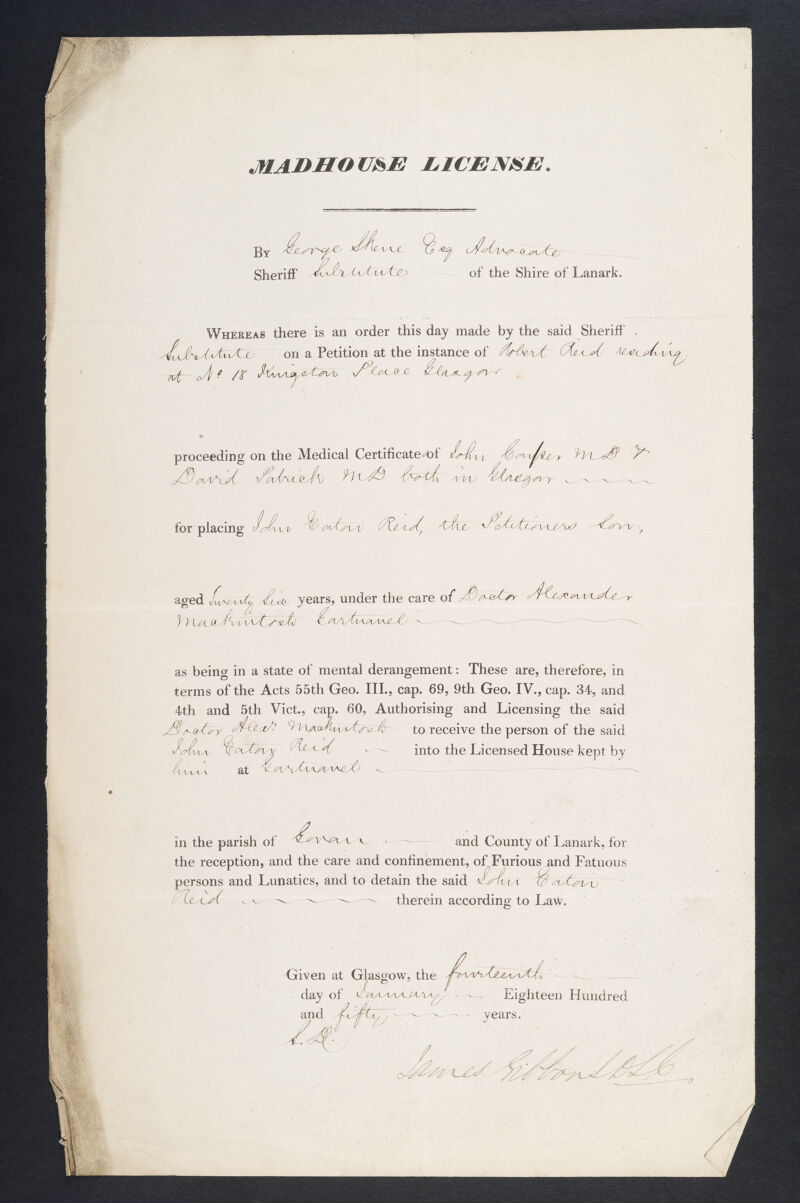 MADHOUSE LICENSE.
By George Skene Esq Advocate
Sheriff Substitute of the Shire of Lanark.
Whereas there is an order this day made by the said Sheriff
Substitute on a Petition at the instance of Robert Reid residing
at No 18 Kingston Place Glasgow
proceeding on the Medical Certificate of John Couper MD &
David Patrick MD both in Glasgow
for placing John Eaton Reid, the Petitioners Son,
aged Twenty Six years, under the care of Doctor Alexander
Mackintosh Gartnavel
as being in a state of mental derangement: These are, therefore, in
terms of the Acts 55th Geo. III., cap. 69, 9th Geo. IV., cap. 34, and
4th and 5th Vict., cap. 60, Authorising and Licensing the said
Doctor Alexr Mackintosh to receive the person of the said
John Eaton Reid into the Licensed House kept by
him at Gartnavel
in the parish of Govan and County of Lanark, for
the reception, and the care and confinement, of Furious and Fatuous
persons and Lunatics, and to detain the said John Eaton
Reid therein according to Law.
Given at Glasgow, the fourteenth
day of January Eighteen Hundred
and fifty years.
James Gibson